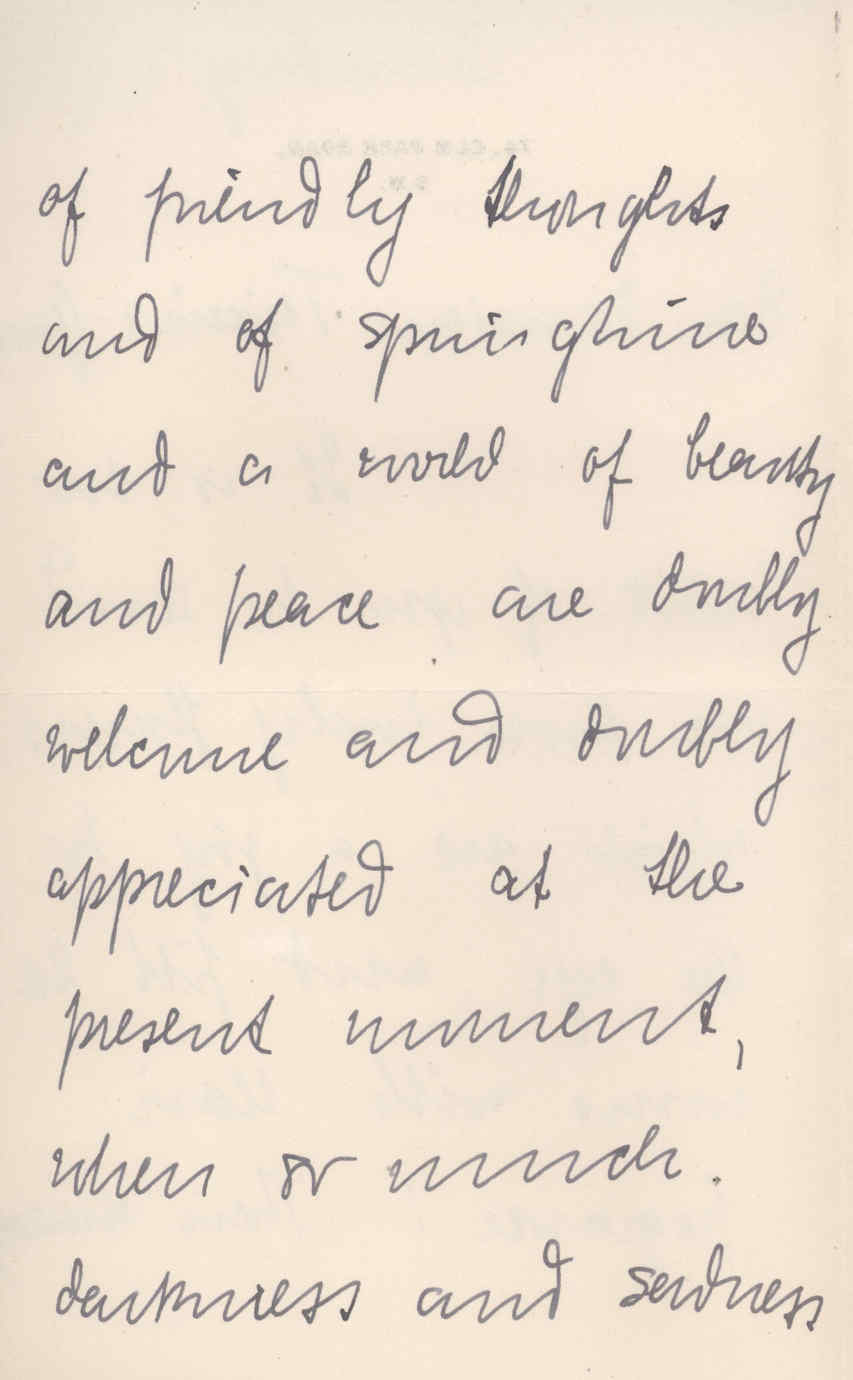 of friendly thoughts
and of springtime
and a world of beauty
and peace are doubly
welcome and doubly
appreciated at the
present moment,
when so much
darkness and sadness